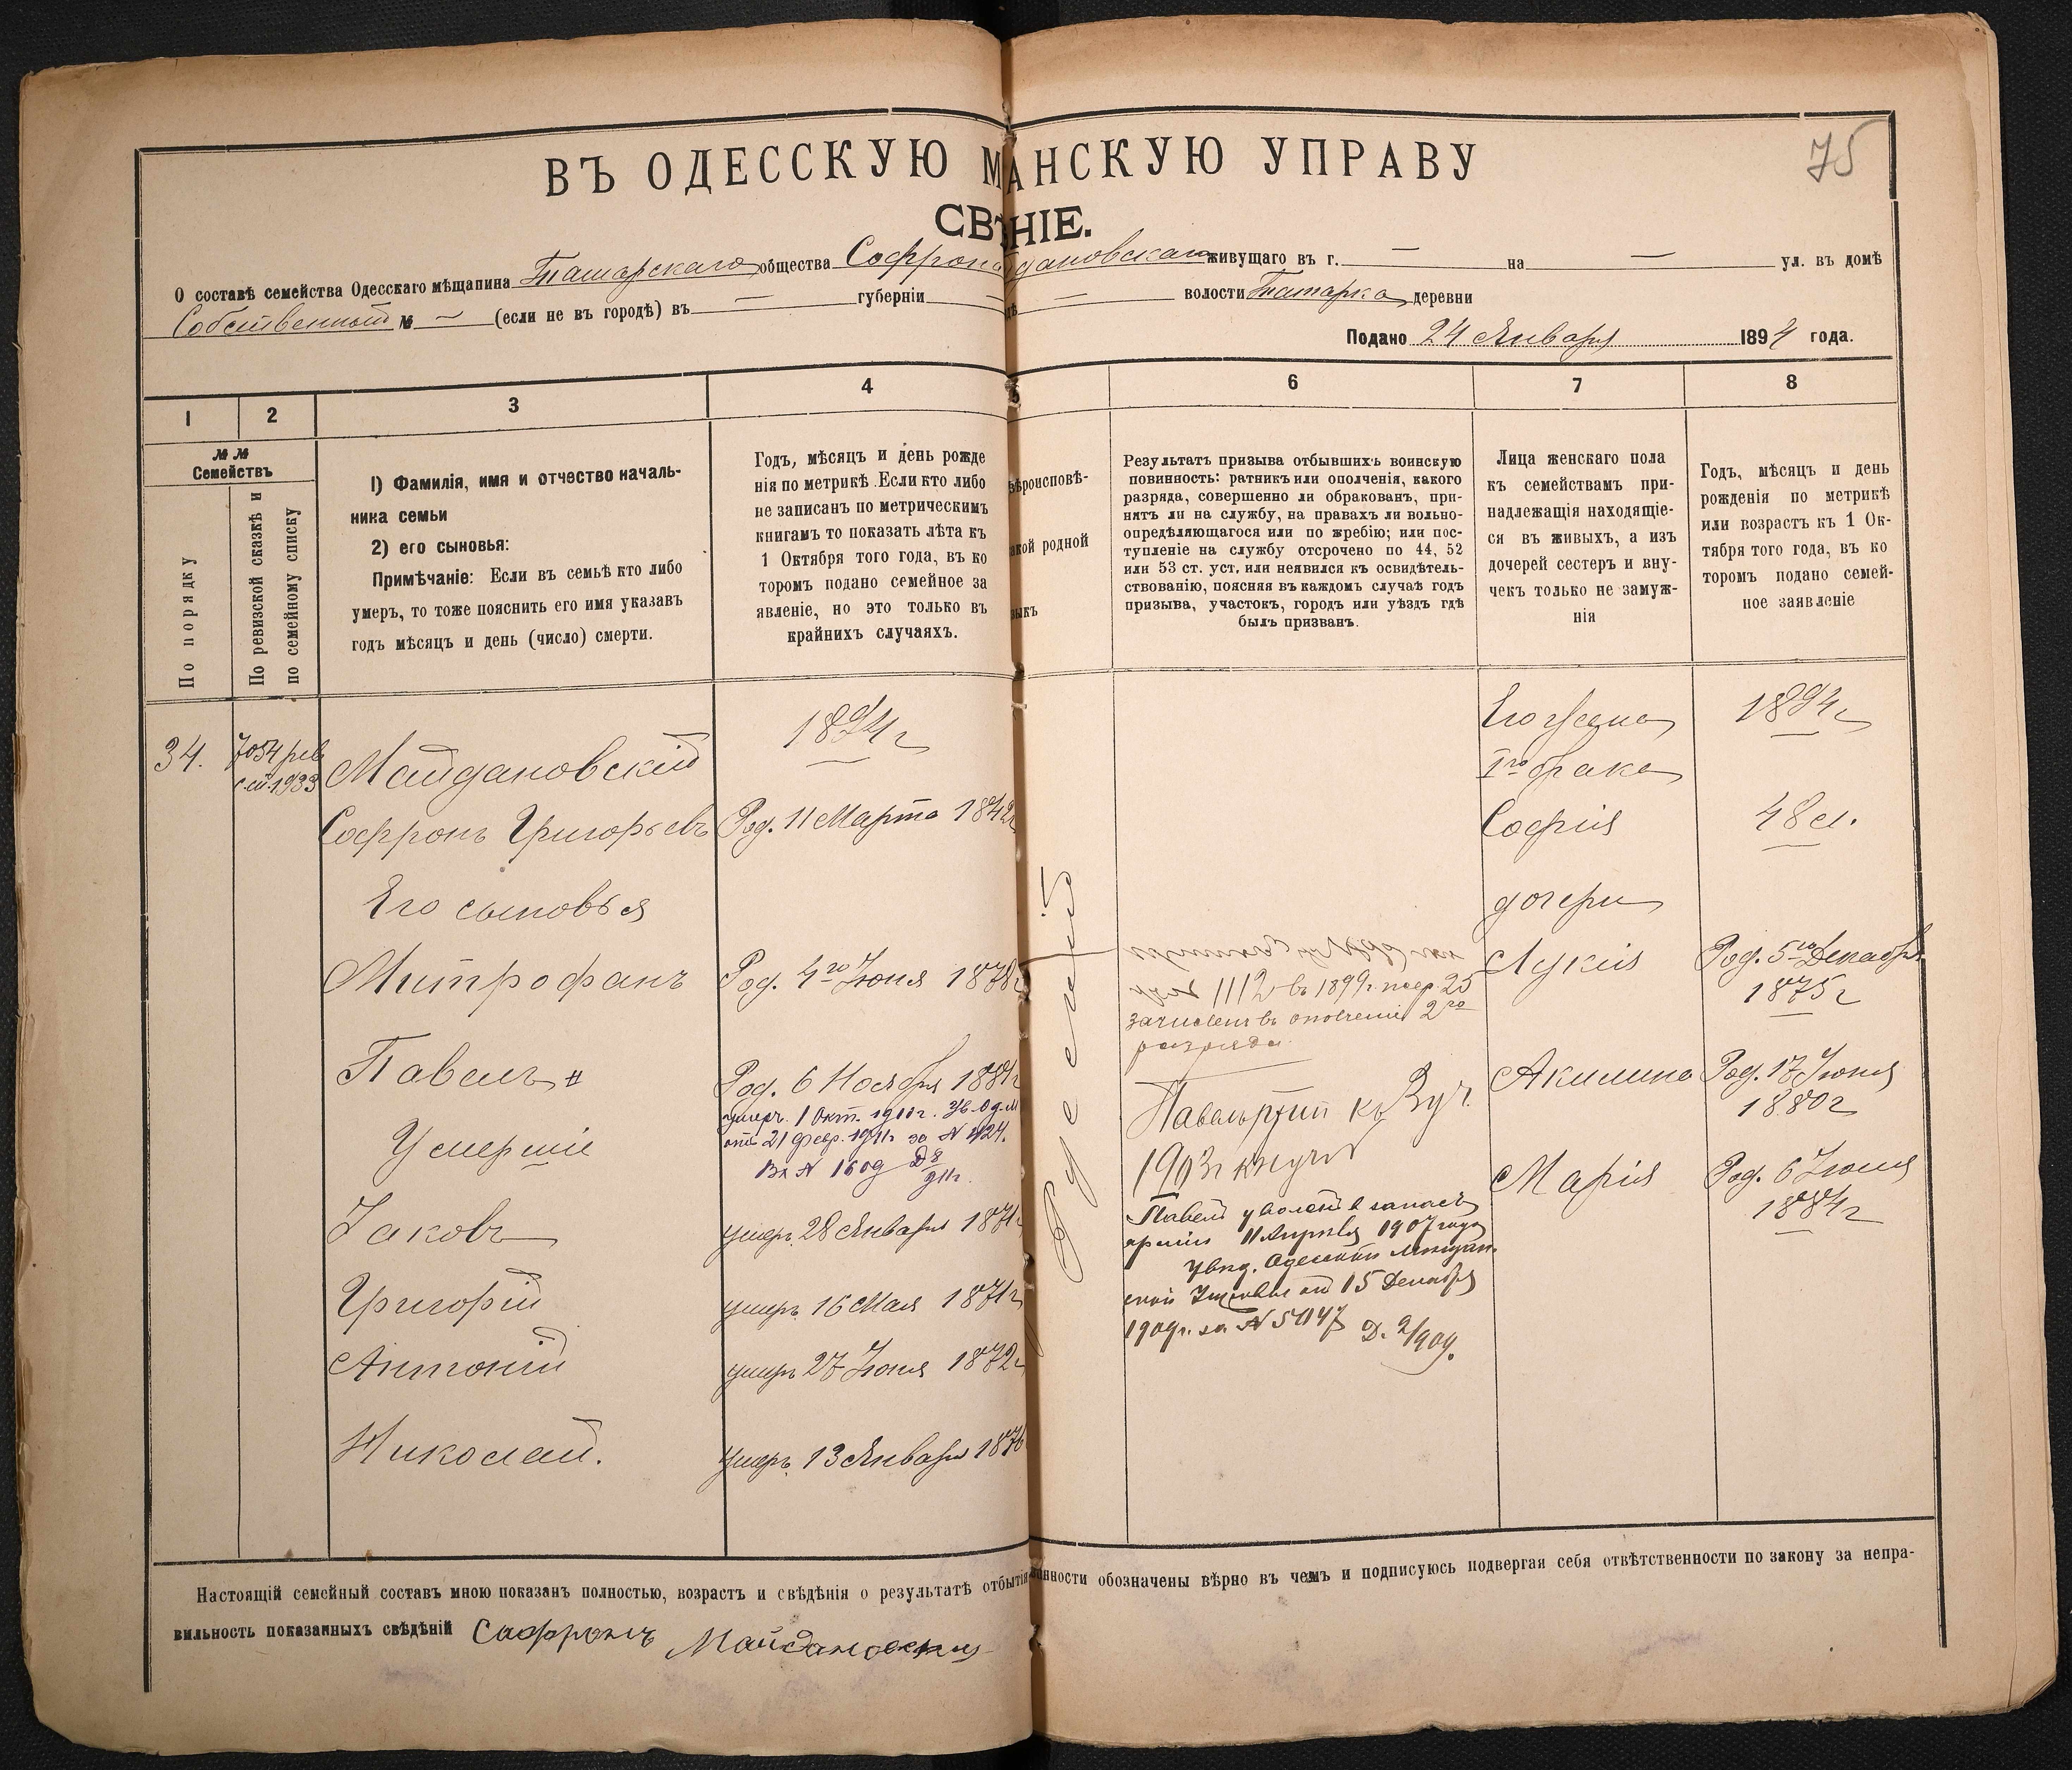 75
ВЪ ОДЕССКУЮ М АНСКУЮ УПРАВУ
СВѢ НІЕ.
О составѣ семейства Одесскаго мѣщанина Татарскаго общества Софрона дановскаго живущаго въ г. — на — ул. въ домѣ
Собственный № — (если не въ городѣ) въ — губерніи — — волости Татарка деревни
Подано 24 Января 1894 года.
1 2 3 4 5 6 7 8
№ № Семействъ
По порядку
По ревизской сказкѣ и по семейному списку
1) Фамилія, имя и отчество началь-
ника семьи
2) его сыновья:
Примѣчаніе: Если въ семьѣ кто либо
умеръ, то тоже пояснить его имя указавъ
годъ мѣсяцъ и день (число) смерти.
Годъ, мѣсяцъ и день рожде
нія по метрикѣ. Если кто либо
не записанъ по метрическимъ
книгамъ то показать лѣта къ
1 Октября того года, въ ко
торомъ подано семейное за
явленіе, но это только въ
крайнихъ случаяхъ.
ѣроисповѣ-
кой родной
зыкъ
Результатъ призыва отбывшихъ воинскую
повинность: ратникъ или ополченія, какого
разряда, совершенно ли обракованъ, при-
нятъ ли на службу, на правахъ ли вольно-
опредѣляющагося или по жребію; или пос-
тупленіе на службу отсрочено по 44, 52
или 53 ст. уст. или неявился къ освидѣтель-
ствованію, поясняя въ каждомъ случаѣ годъ
призыва, участокъ, городъ или уѣздъ гдѣ
былъ призванъ.
Лица женскаго пола
къ семействамъ при-
надлежащія находящіе-
ся въ живыхъ, а изъ
дочерей сестеръ и вну-
чекъ только не замуж-
нія
Годъ, мѣсяцъ и день
рожденія по метрикѣ
или возрастъ къ 1 Ок-
тября того года, въ ко
торомъ подано семей-
ное заявленіе
34.
7054 рев.
1933
Майдановскій
1894 г
Софронъ Григорьевъ
Род. 11 Марта 1842
Его сыновья
Митрофанъ
Род. 4го Іюня 1878
Павелъ #
Род. 6 Ноября 1881
умеръ 1 Окт. 1910 г. Ув. Од. М
отъ 21 февр. 1911 г за № 424.
Вх № 1609 Д 8/911г.
Умершіе
Іаковъ
умеръ 28 Января 1871
Григорій
умеръ 16 Мая 1871 г
Антоній
умеръ 27 Іюня 1872 г
Николай.
умеръ 13 Января 1876
Русскій
1112 въ 1899 г. 25
зачисленъ въ ополченіе 2го
разряда
Павелъ
1903 г
Павелъ уволенъ в запасъ
арміи 11 Апрѣля 1907 года
увѣд. Одесской Мѣщан-
ской Управы от 15 Декабря
1909 г. за № 5047 Д. 2/909.
Его жена
1894 г
Iго брака
Софія
48 л.
дочери
Лукія
Род. 5го Декабря
1875 г
Акилина
Род. 17 Іюня
1880 г
Марія
Род. 6 Іюля
1884 г
Настоящій семейный составъ мною показанъ полностью, возрастъ и свѣдѣнія о результатѣ отбытія нности обозначены вѣрно въ чемъ и подписуюсь подвергая себя отвѣтственности по закону за непра-
вильность показанныхъ свѣдѣній Софронъ Майдановскій